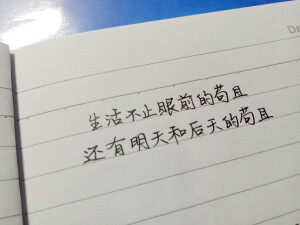 生活不止眼前的苟且
还有明天和后天的苟且